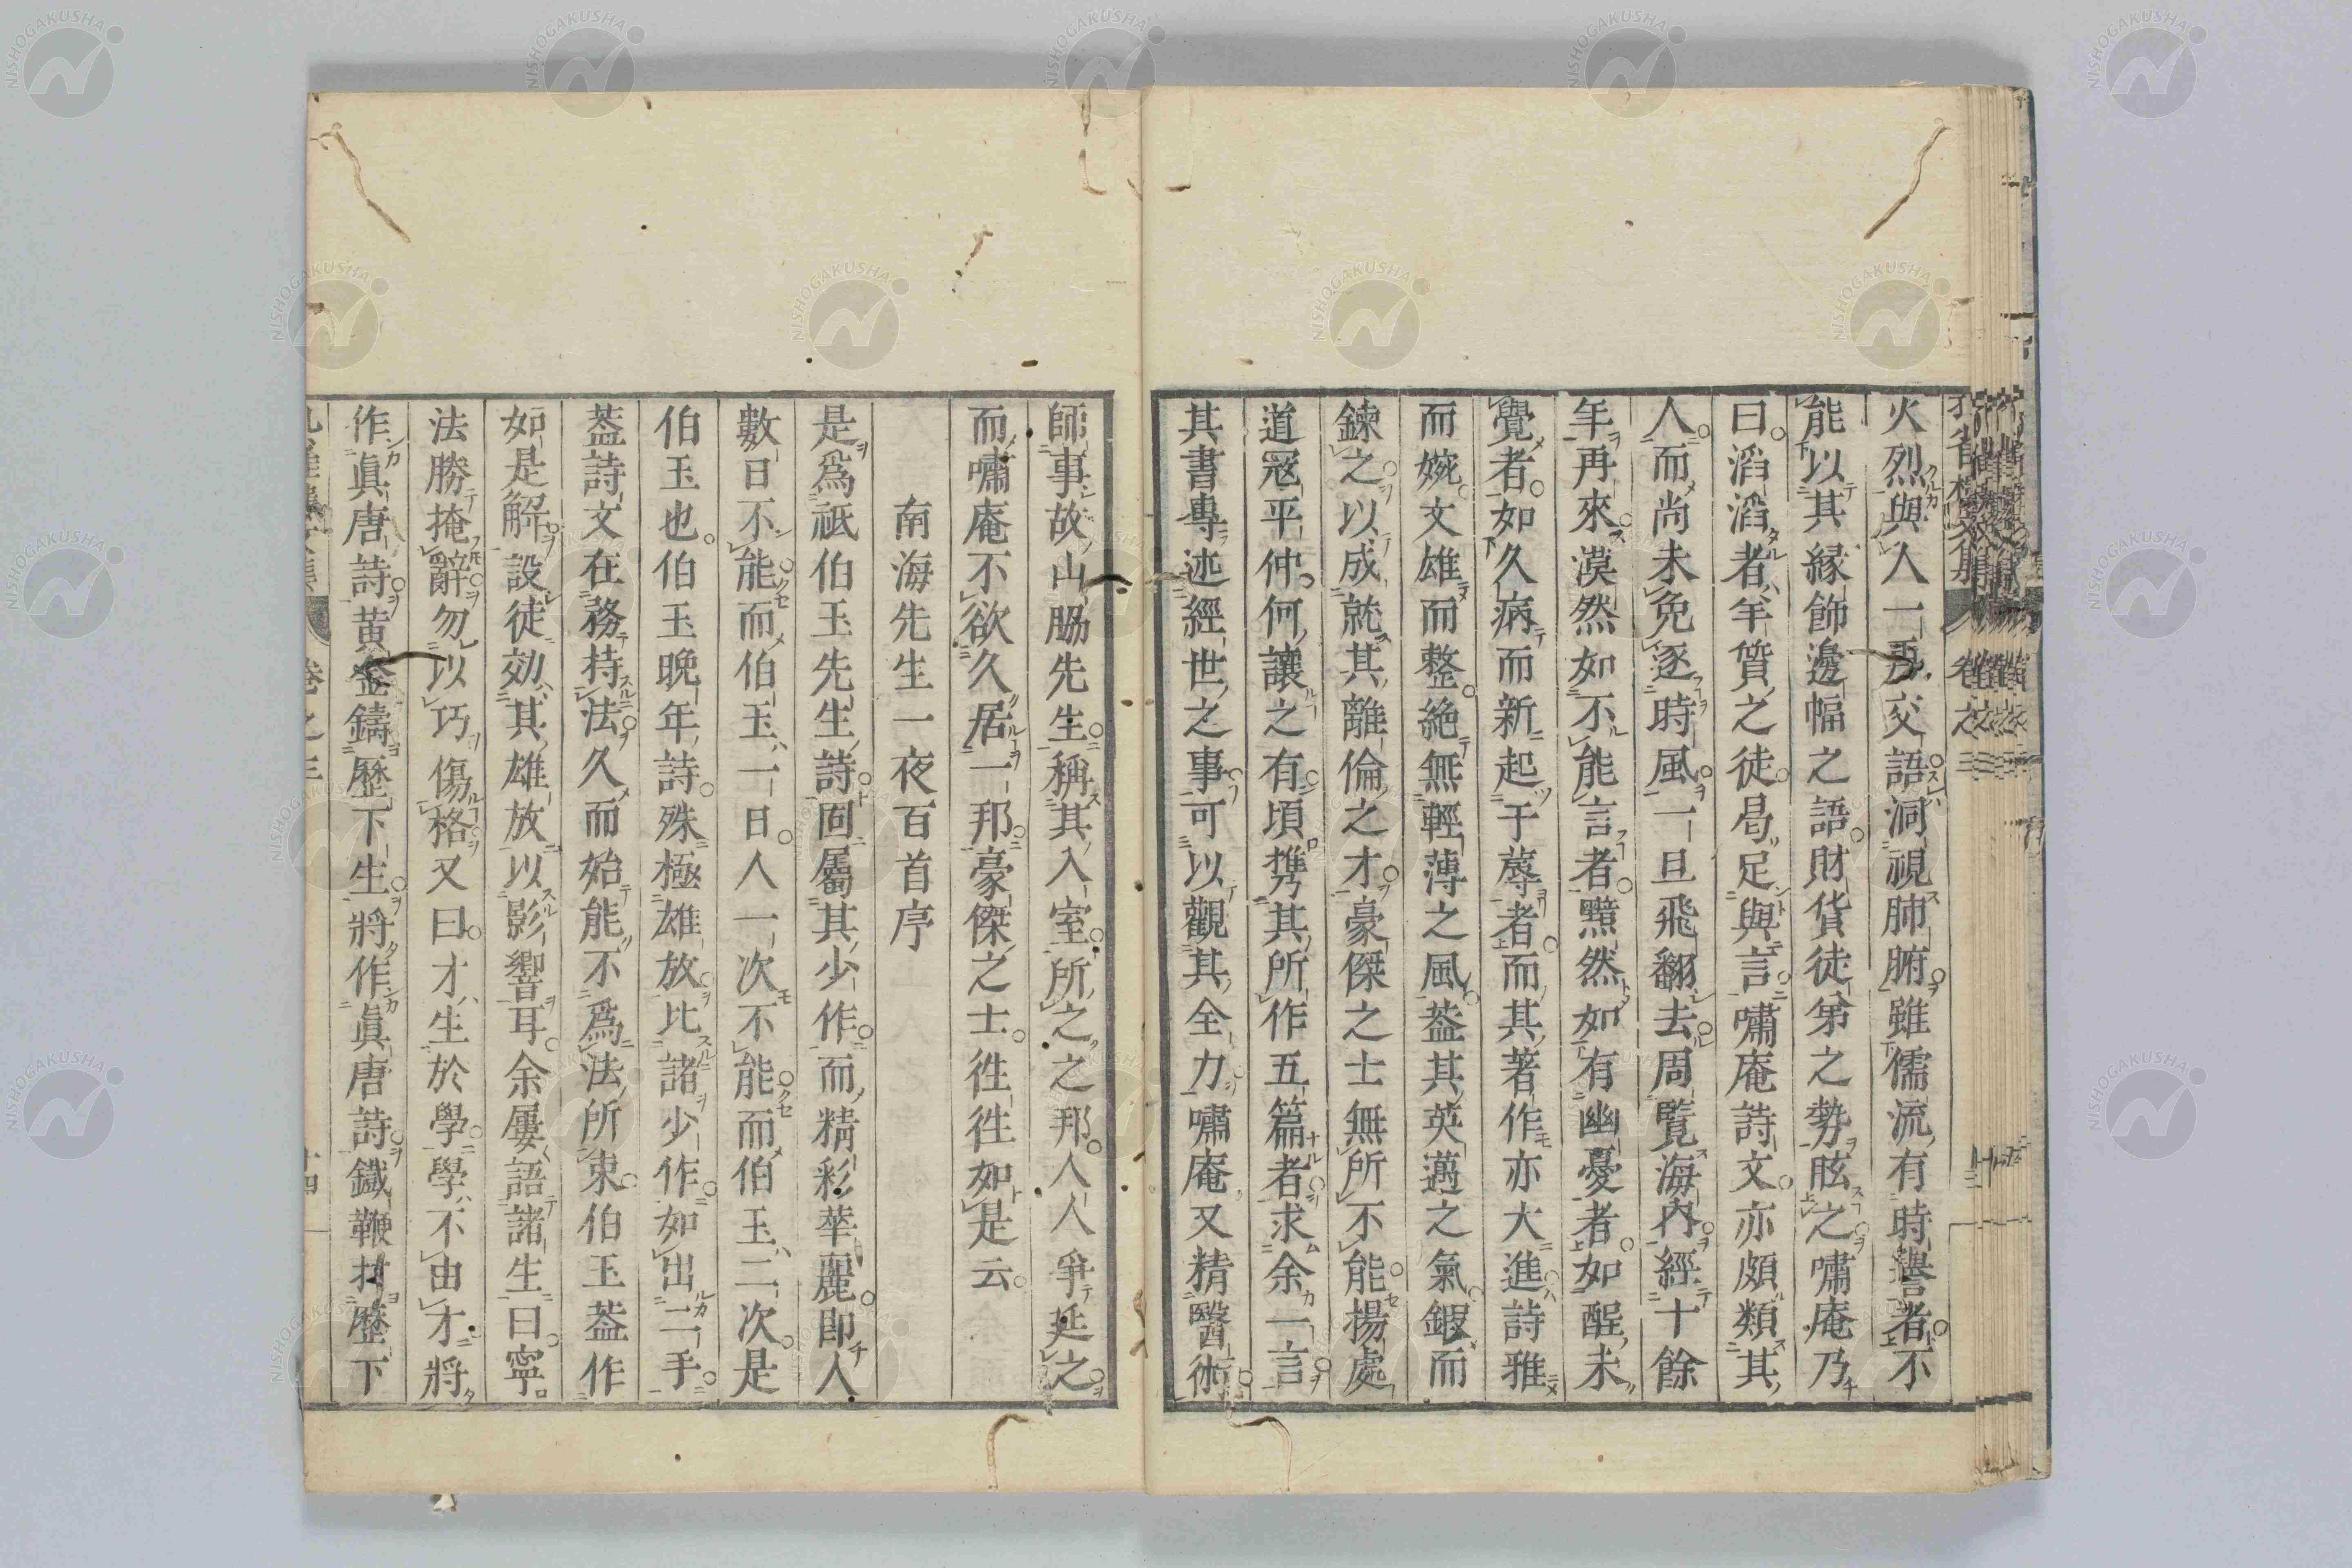 火烈與人一再交語洞視肺腑雖儒流有時譽者不
能以其縁飾邊幅之語財貨徒第之勢眩之嘯庵乃
曰滔滔者羊質之徒曷足與言嘯庵詩文亦頗類其
人而尚未免逐時風一旦飛翻去周覽海內經十餘
年再來漠然如不能言者黯然如有幽憂者如酲未
覺者如久病而新起于蓐者而其著作亦大進詩雅
而婉文雄而整絶無輕薄之風葢其英邁之氣鍜而
鍊之以成就其離倫之才豪傑之士無所不能揚處
道冦平仲何讓之有頃携其所作五篇者求余一言
其書專述經世之事可以觀其全力嘯庵又精醫術
師事故山脇先生稱其入室所之之邦人人爭延之
而嘯庵不欲久居一邦豪傑之士徃徃如是云
南海先生一夜百首序
是爲祇伯玉先生詩固屬其少作而精彩華麗卽人
數日不能而伯玉一日人一次不能而伯玉二次是
伯玉也伯玉晩年詩殊極雄放比諸少作如出二手
葢詩文在務持法久而始能不爲法所束伯玉葢作
如是解設徒効其雄放以影響耳余屢語諸生曰寧
法勝掩辭勿以巧傷格又曰才生於學學不由才將
作眞唐詩黃金鑄歷下生將作眞唐詩鐵鞭打歷下
卷之三
十四
NISHOGAKUSHA